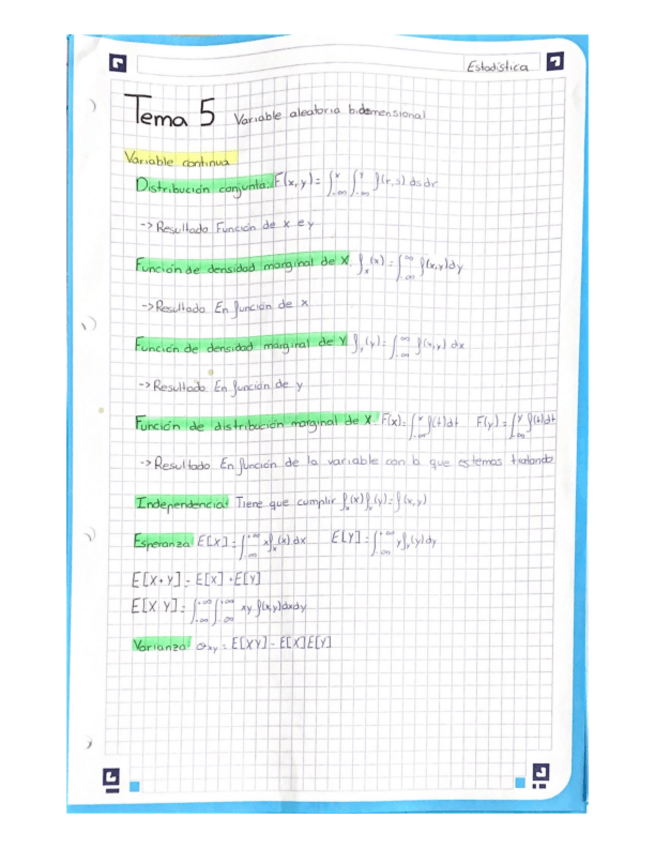 Estadística
Tema 5 Variable aleatoria bidemensional
Variable continua
Distribución conjunta: F(x,y) = ∫_{-∞}^{x} ∫_{-∞}^{y} f(r,s) ds dr
-> Resultado Función de x e y
Función de densidad marginal de X. f_x(x) = ∫_{-∞}^{∞} f(x,y) dy
-> Resultado En función de x
Función de densidad marginal de Y f_y(y) = ∫_{-∞}^{∞} f(x,y) dx
-> Resultado En función de y
Función de distribución marginal de X F(x) = ∫_{-∞}^{x} f(t)dt F(y) = ∫_{-∞}^{y} f(t)dt
-> Resultado En función de la variable con la que estemos tratando
Independencia! Tiene que cumplir f_x(x) f_y(y) = f(x,y)
Esperanza! E[X] = ∫_{-∞}^{+∞} x f_x(x) dx E[Y] = ∫_{-∞}^{+∞} y f_y(y) dy
E[X+Y] = E[X] + E[Y]
E[X Y] = ∫_{-∞}^{+∞} ∫_{∞}^{+∞} xy f(x,y) dx dy
Varianza! σ_xy = E[XY] - E[X]E[Y]